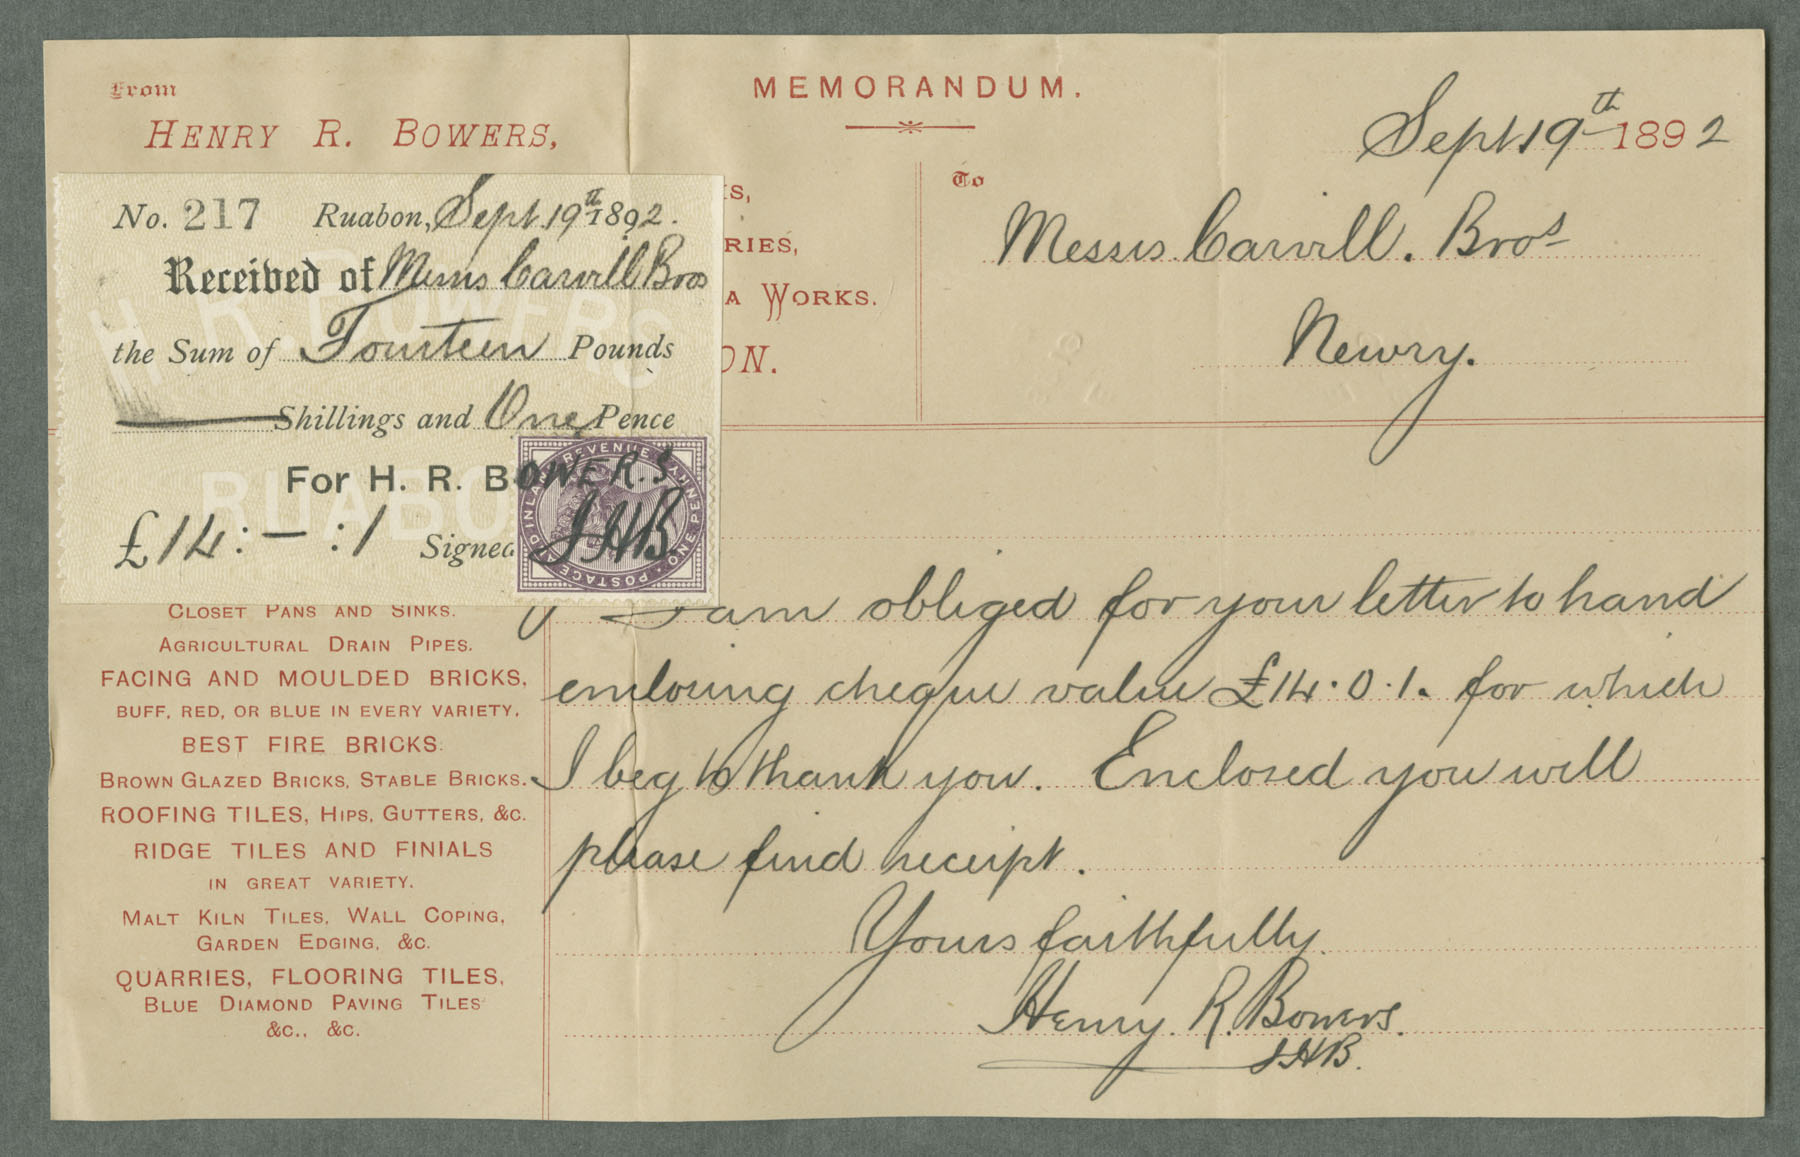 From
HENRY R. BOWERS,
MEMORANDUM.
Sept 19th 1892
To
Messrs. Carvill. Bros
Newry.
RIES,
A WORKS.
ON.
No. 217 Ruabon, Sept. 19th 1892.
Received of Messrs Carvill Bros
the Sum of Fourteen Pounds
Shillings and One Pence
For H. R. BOWERS
£14:—:1 Signed JHB.
H. R. BOWERS
RUABO
POSTAGE AND INLAND REVENUE
ONE PENNY
I am obliged for your letter to hand
enclosing cheque value £14.0.1. for which
I beg to thank you. Enclosed you will
please find receipt.
Yours faithfully.
Henry. R. Bowers.
JHB.
CLOSET PANS AND SINKS.
AGRICULTURAL DRAIN PIPES.
FACING AND MOULDED BRICKS,
BUFF, RED, OR BLUE IN EVERY VARIETY.
BEST FIRE BRICKS.
BROWN GLAZED BRICKS, STABLE BRICKS.
ROOFING TILES, HIPS, GUTTERS, &C.
RIDGE TILES AND FINIALS
IN GREAT VARIETY.
MALT KILN TILES, WALL COPING,
GARDEN EDGING, &C.
QUARRIES, FLOORING TILES,
BLUE DIAMOND PAVING TILES
&C., &C.